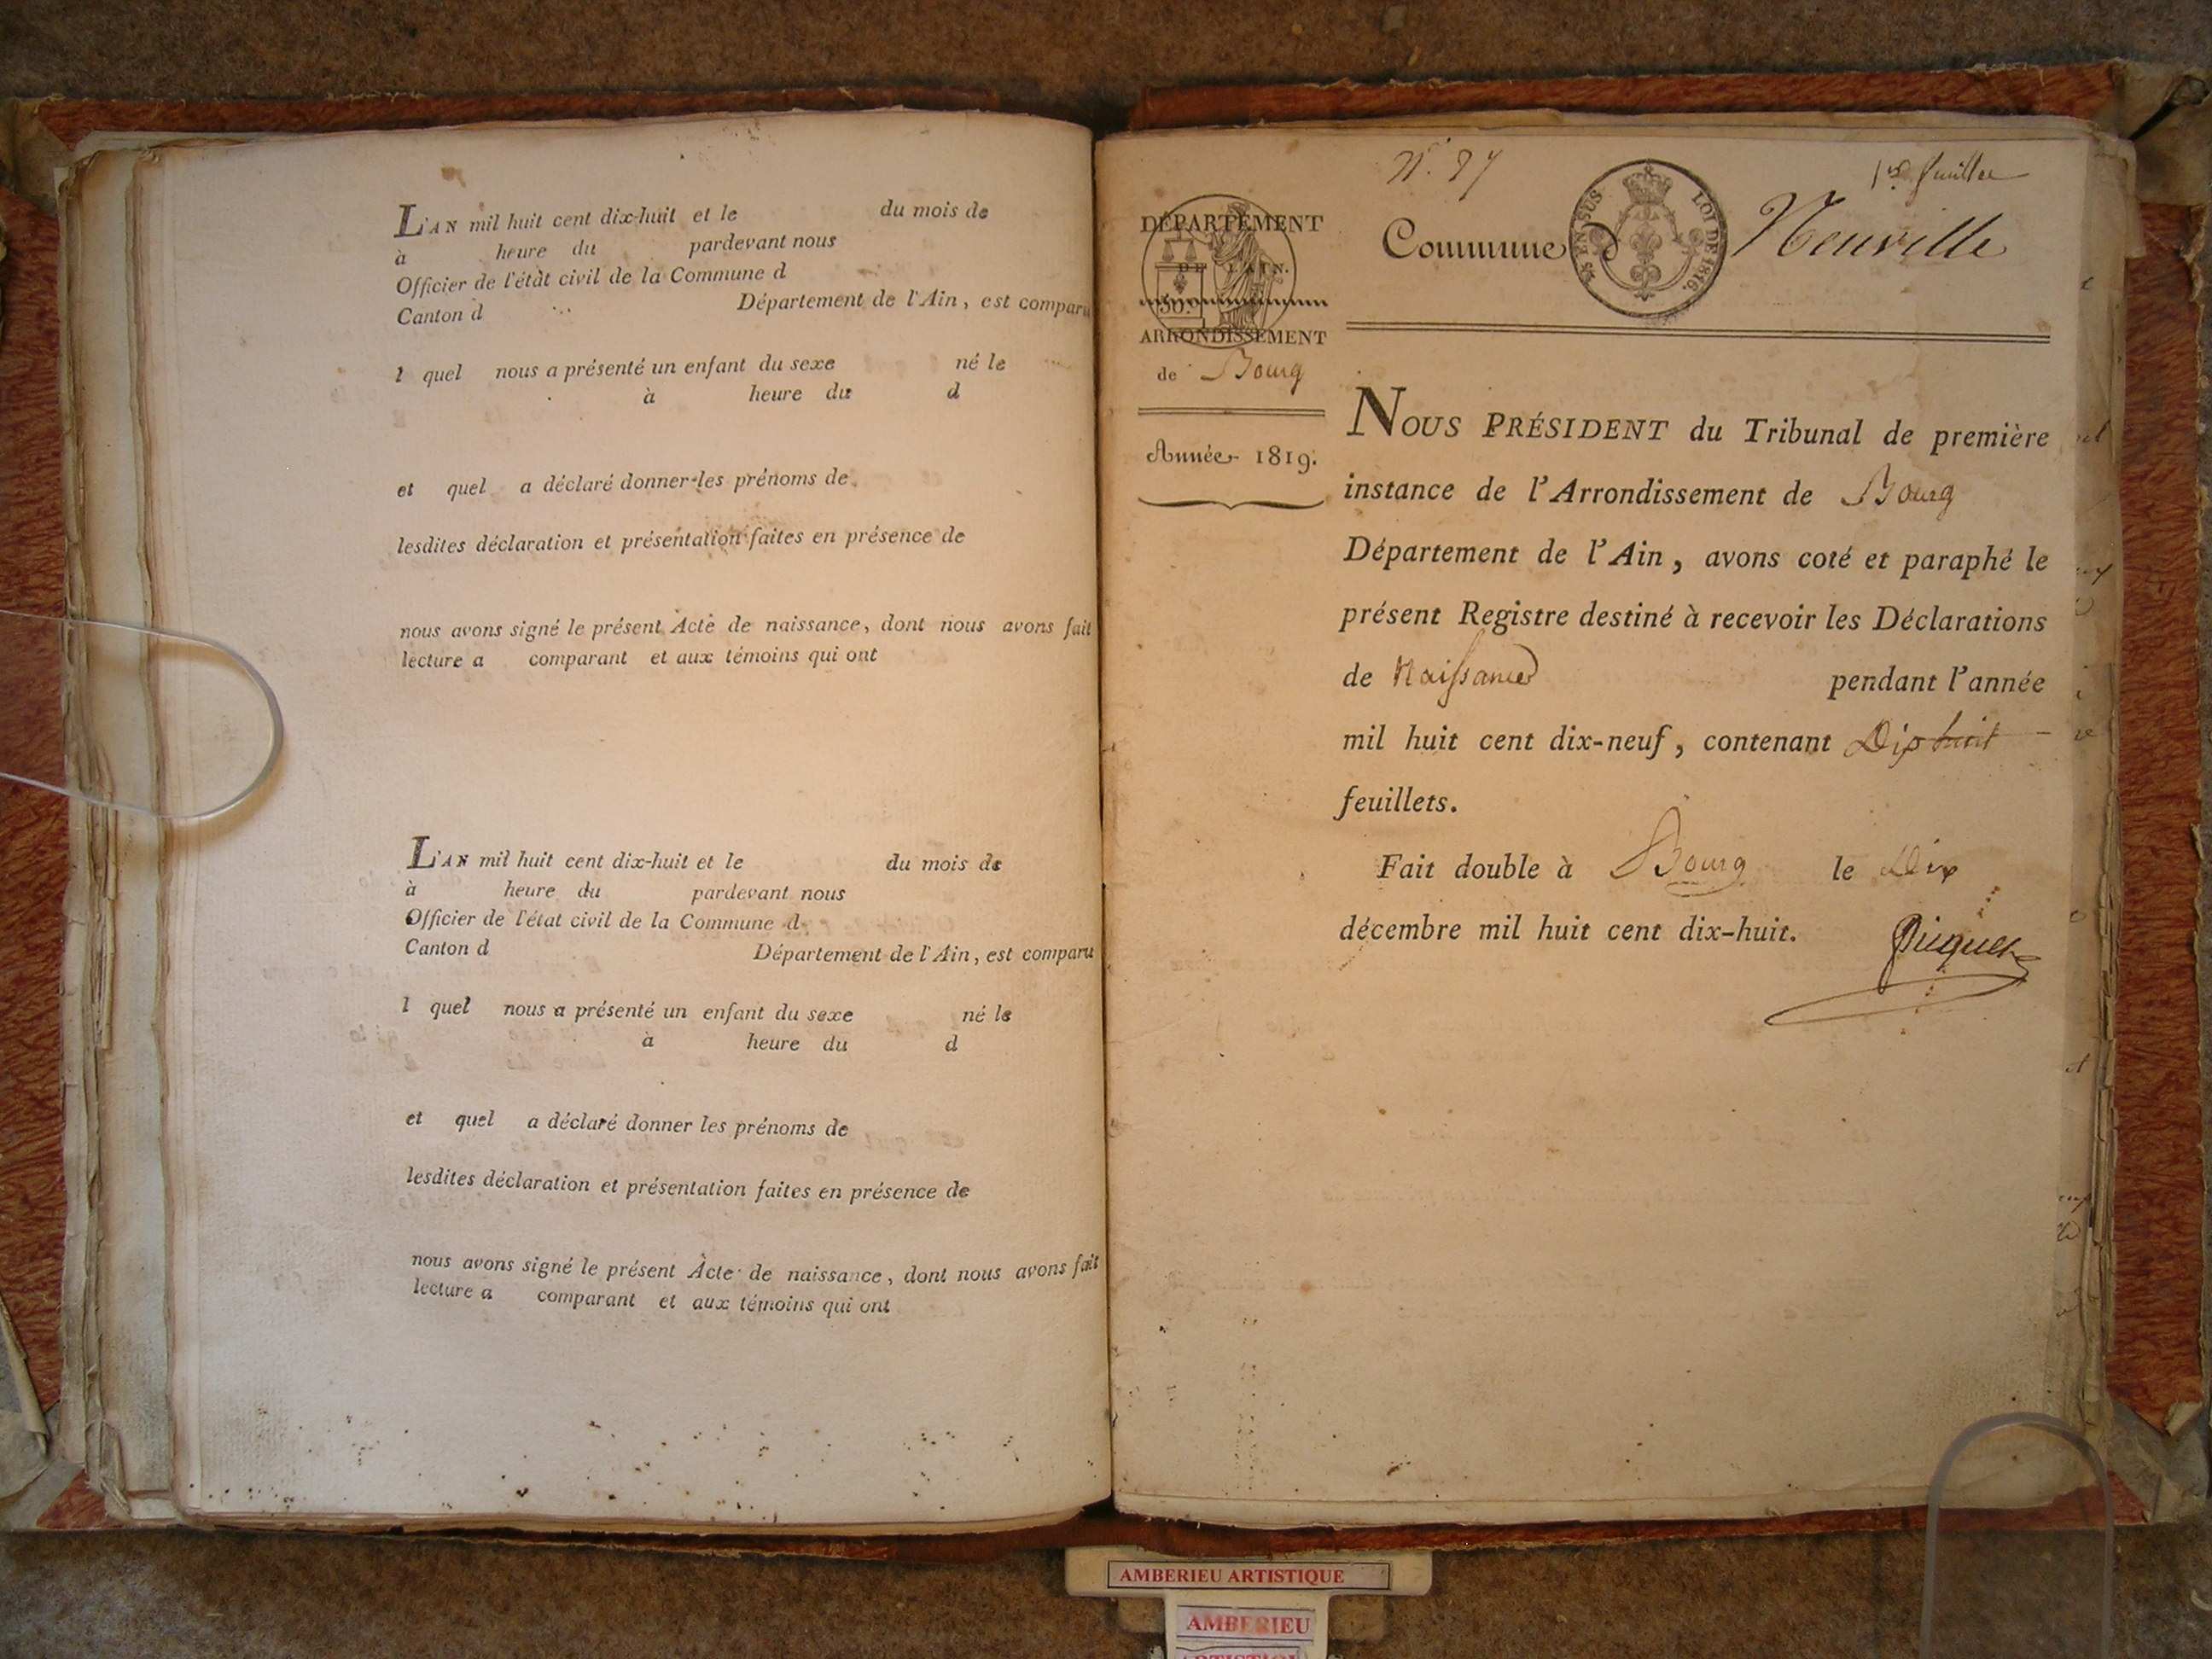 L'AN mil huit cent dix-huit et le du mois de
à heure du pardevant nous
Officier de l'état civil de la Commune d
Canton d Département de l'Ain, est comparu
l quel nous a présenté un enfant du sexe né le
à heure du d
et quel a déclaré donner les prénoms de
lesdites déclaration et présentation faites en présence de
nous avons signé le présent Acte de naissance, dont nous avons fait
lecture a comparant et aux témoins qui ont
L'AN mil huit cent dix-huit et le du mois de
à heure du pardevant nous
Officier de l'état civil de la Commune d
Canton d Département de l'Ain, est comparu
l quel nous a présenté un enfant du sexe né le
à heure du d
et quel a déclaré donner les prénoms de
lesdites déclaration et présentation faites en présence de
nous avons signé le présent Acte de naissance, dont nous avons fait
lecture a comparant et aux témoins qui ont
1er feuillet
DÉPARTEMENT
DE L'AIN.
50.
ARRONDISSEMENT
de Bourg
Année 1819.
Commune d Neuville
EN SUS LOI DE 1816.
NOUS PRÉSIDENT du Tribunal de première
instance de l'Arrondissement de Bourg
Département de l'Ain, avons coté et paraphé le
présent Registre destiné à recevoir les Déclarations
de Naissance pendant l'année
mil huit cent dix-neuf, contenant Dix huit
feuillets.
Fait double à Bourg le Dix
décembre mil huit cent dix-huit.
Picquet
AMBERIEU ARTISTIQUE
AMBERIEU
ARTISTIQ